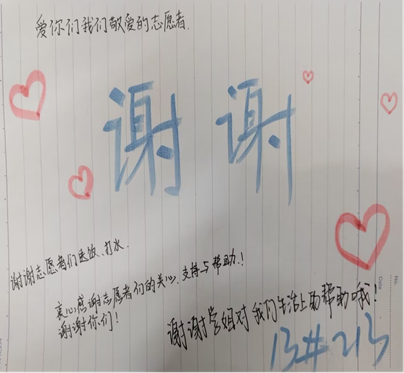 爱你们我们敬爱的志愿者.
谢谢
谢谢志愿者们送饭、打水.
衷心感谢志愿者们的关心、支持与帮助!
谢谢你们!
谢谢学姐对我们生活上的帮助哦!
13#213